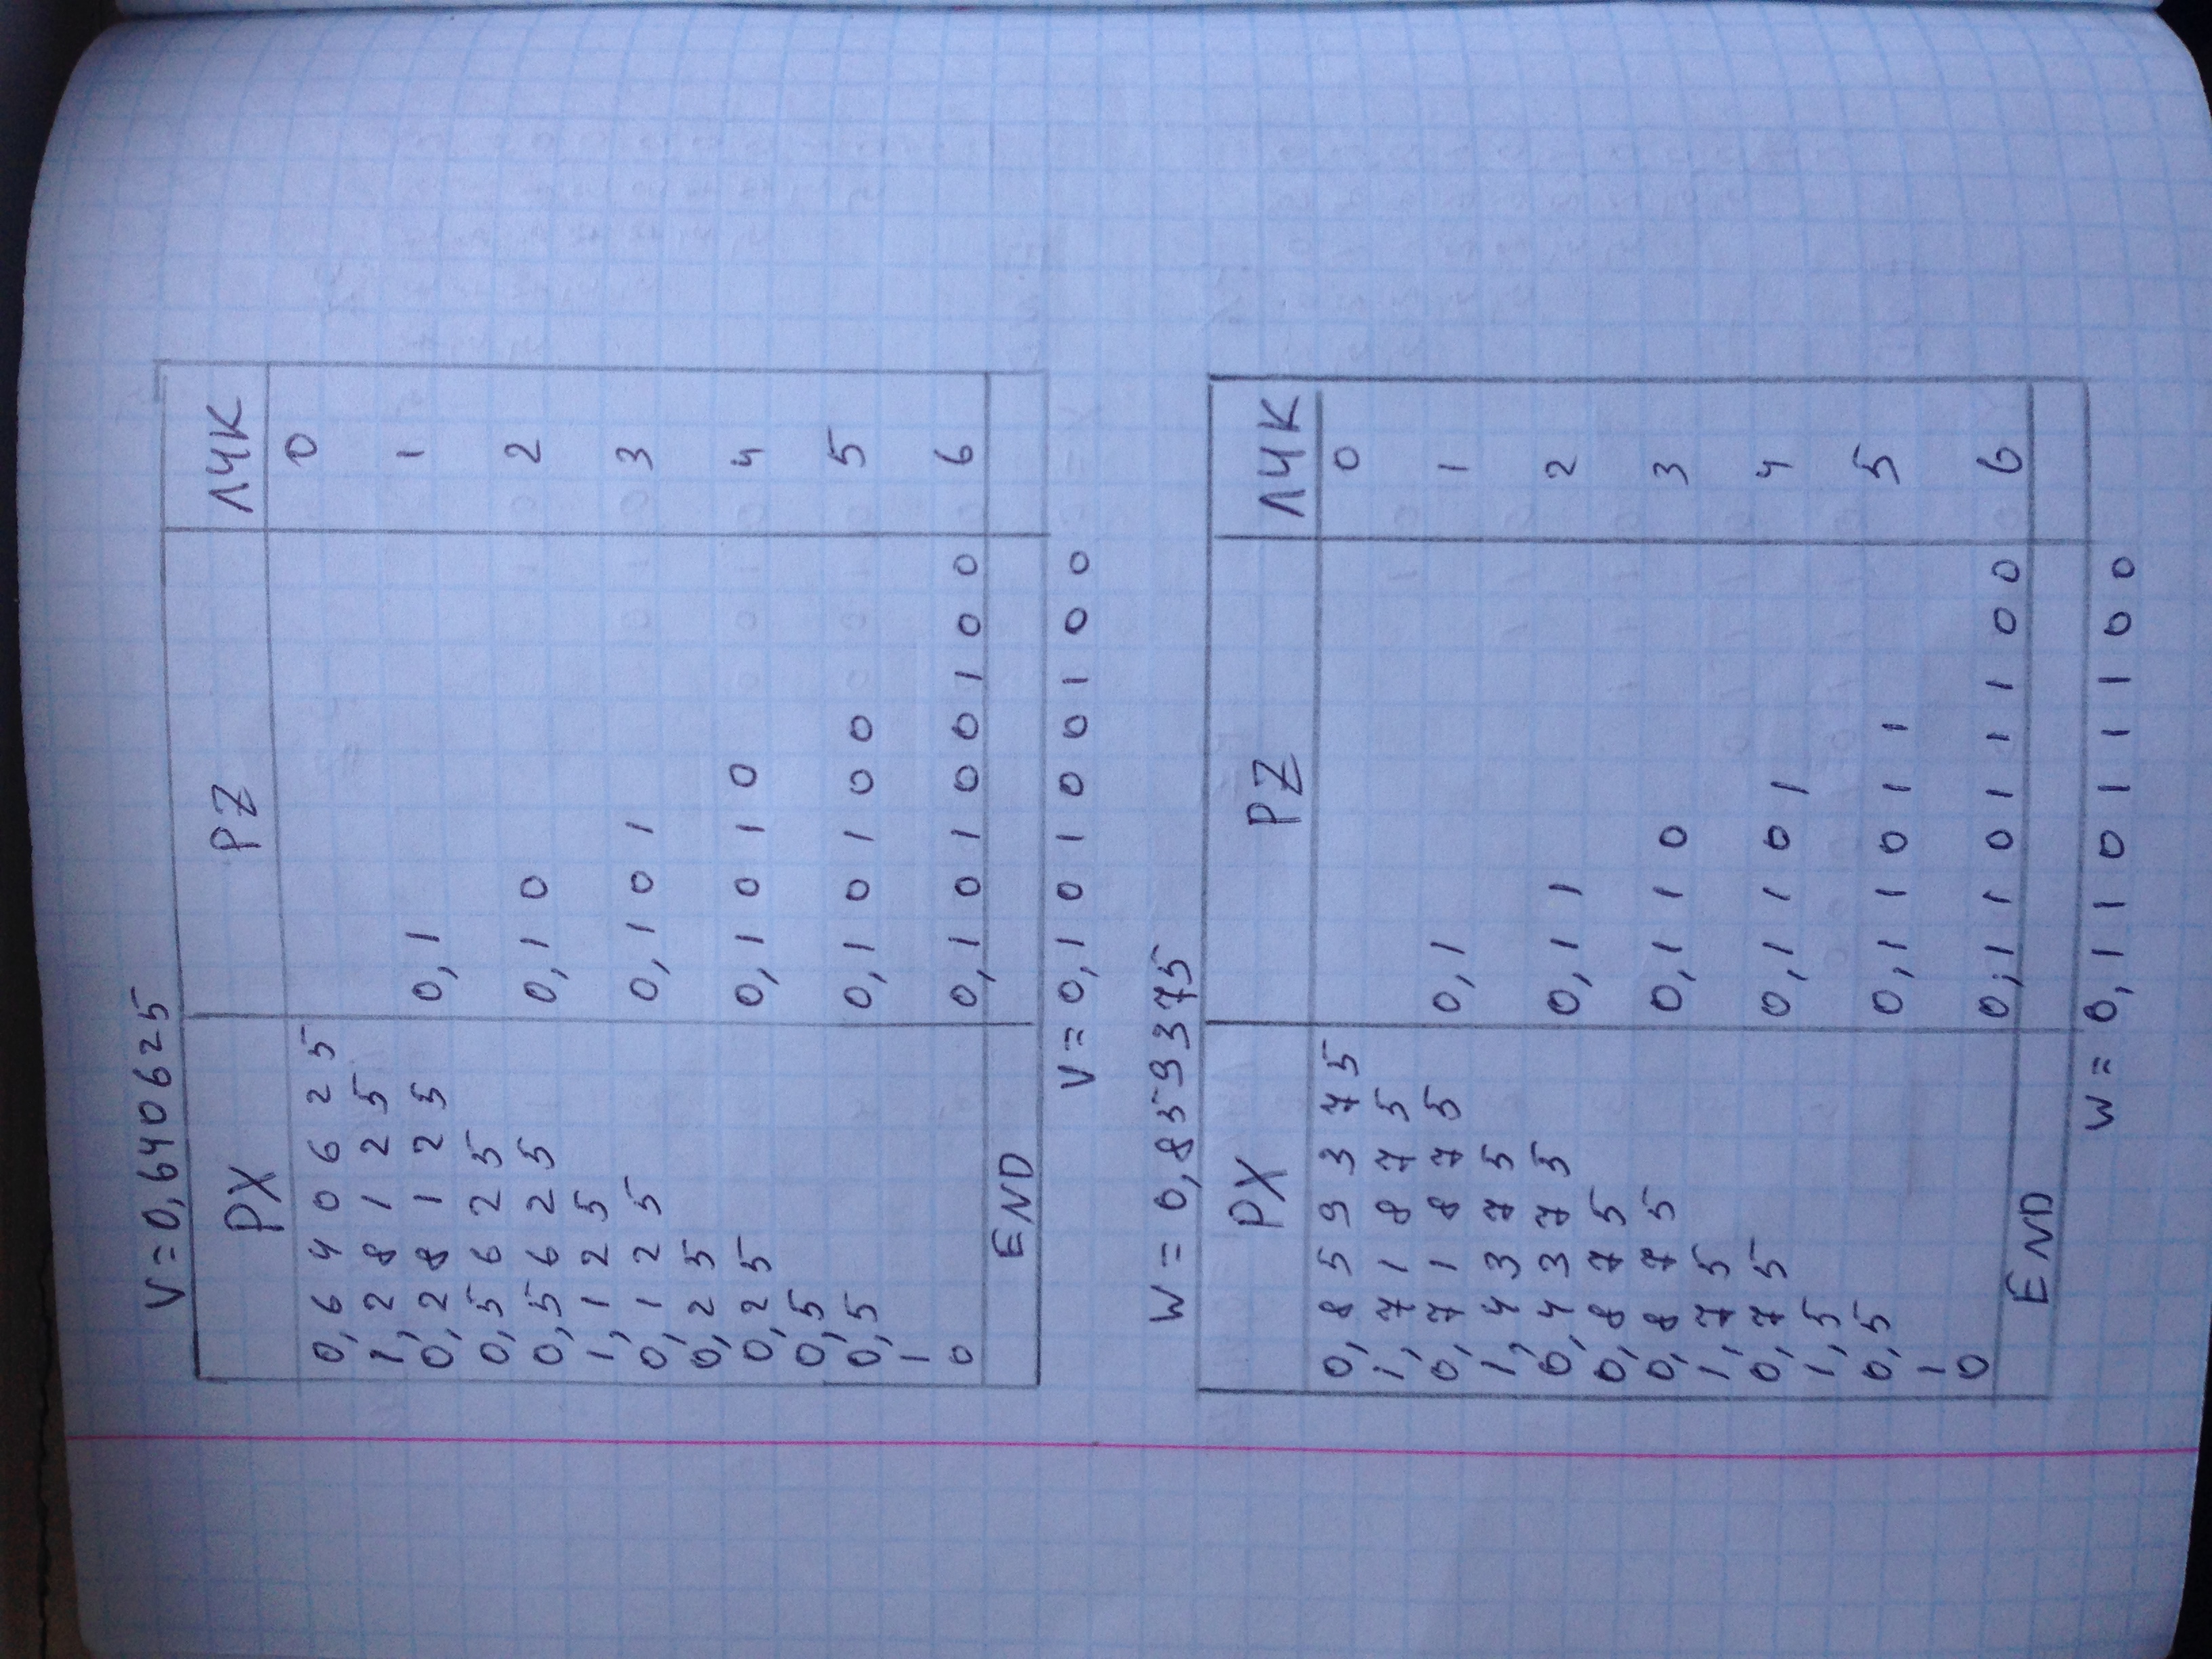 V=0,640625
PX PZ ЛЧК
0,640625 0
1,28125
0,28125 0,1 1
0,5625
0,5625 0,10 2
1,125
0,125 0,101 3
0,25
0,25 0,1010 4
0,5
0,5 0,10100 5
1
0 0,10100100 6
END
V=0,10100100
W=0,859375
PX PZ ЛЧК
0,859375 0
1,71875
0,71875 0,1 1
1,4375
0,4375 0,11 2
0,875
0,875 0,110 3
1,75
0,75 0,1101 4
1,5
0,5 0,11011 5
1
0 0,11011100 6
END
W=0,11011100